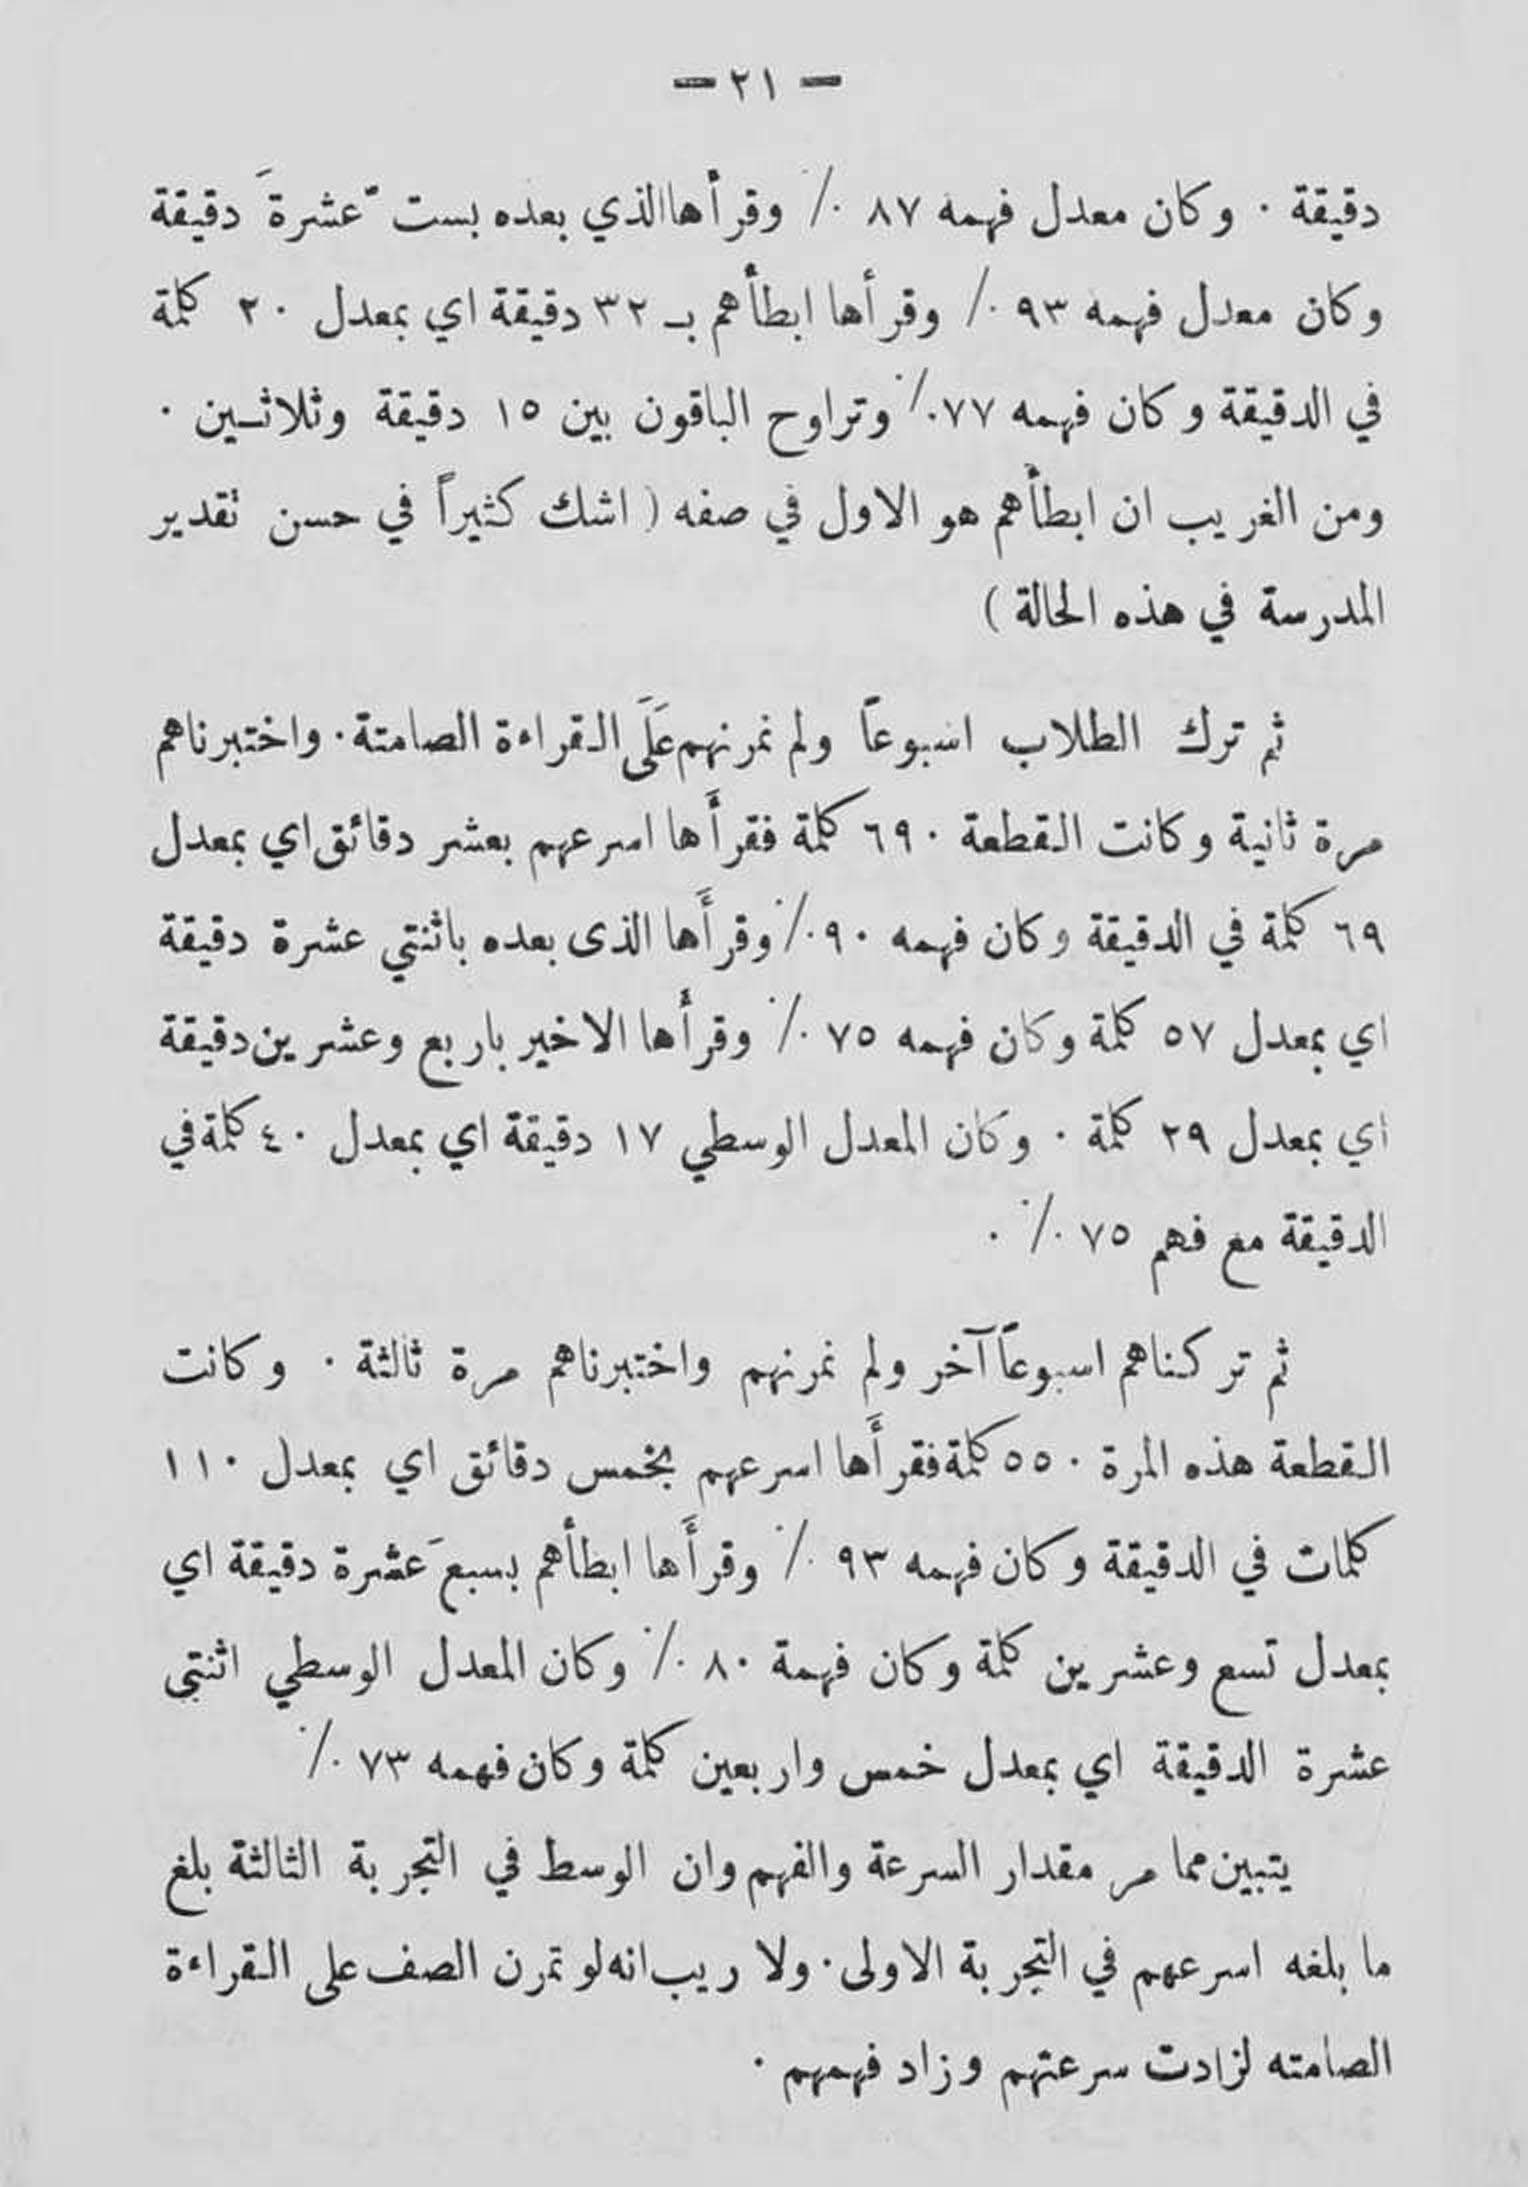 — ٢١ —
دقيقة . وكان معدل فهمه ٨٧ ٪ وقرأها الذي بعده بست عشرةَ دقيقة
وكان معدل فهمه ٩٣ ٪ وقرأها ابطأهم بـ ٣٢ دقيقة اي بمعدل ٢٠ كلمة
في الدقيقة وكان فهمه ٧٧٪ وتراوح الباقون بين ١٥ دقيقة وثلاثين .
ومن الغريب ان ابطأهم هو الاول في صفه ( اشك كثيراً في حسن تقدير
المدرسة في هذه الحالة )
ثم ترك الطلاب اسبوعاً ولم نمرنهم عَلَى القراءة الصامتة . واختبرناهم
مرة ثانية وكانت القطعة ٦٩٠ كلمة فقرأَها اسرعهم بعشر دقائق اي بمعدل
٦٩ كلمة في الدقيقة وكان فهمه ٩٠ ٪ وقرأَها الذى بعده باثنتي عشرة دقيقة
اي بمعدل ٥٧ كلمة وكان فهمه ٧٥ ٪ وقرأَها الاخير باربع وعشرين دقيقة
اي بمعدل ٢٩ كلمة . وكان المعدل الوسطي ١٧ دقيقة اي بمعدل ٤٠ كلمة في
الدقيقة مع فهم ٧٥ ٪ .
ثم تركناهم اسبوعاً آخر ولم نمرنهم واختبرناهم مرة ثالثة . وكانت
القطعة هذه المرة ٥٥٠ كلمة فقرأَها اسرعهم بخمس دقائق اي بمعدل ١١٠
كلمات في الدقيقة وكان فهمه ٩٣ ٪ وقرأَها ابطأهم بسبعَ عشرة دقيقة اي
بمعدل تسع وعشرين كلمة وكان فهمة ٨٠ ٪ وكان المعدل الوسطي اثنتى
عشرة الدقيقة اي بمعدل خمس واربعين كلمة وكان فهمه ٧٣ ٪
يتبين مما مر مقدار السرعة والفهم وان الوسط في التجربة الثالثة بلغ
ما بلغه اسرعهم في التجربة الاولى . ولا ريب انه لو تمرن الصف على القراءة
الصامته لزادت سرعتهم وزاد فهمهم .